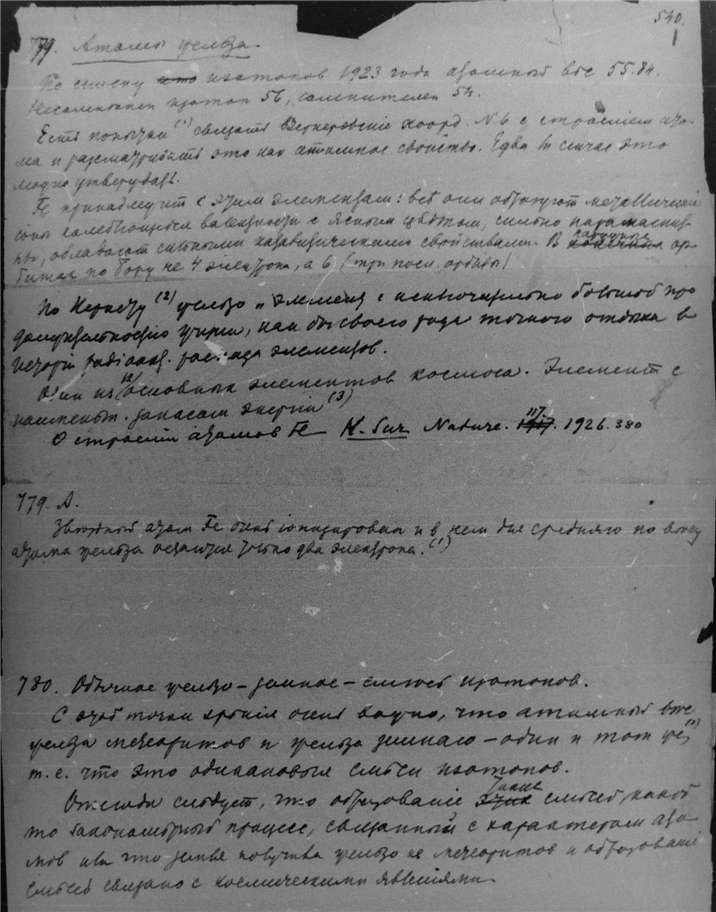 540.
779. Атомы железа.
По списку изотопов 1923 года атомный вес 55.84.
изотоп 56, 54.
Есть попытки (1) связать Вернеровские коорд. N 6 с строением ато-
ма и рассматривать это как атомное свойство. Едва ли сейчас это
можно утверждать.
Fe принадлежит к этим элементам: все они образуют металлические
ионы колеблющейся валентности с ясным цветом, сильно парамагнит-
ны, обладают сильными каталитическими свойствами. В ор-
битах по Бору не 4 электрона, а 6 (три посл. орбиты)
По (2) железо „элемент с исключительно большой про
должительностью жизни, как бы своего рода точкой отдыха в
истории radioakt. распада элементов.
Один из основных элементов космоса. Элемент с
наименьш. запасом энергии (3)
О строении атомов Fe Nature. 117. 1926. 380
779. А.
Звездный атом Fe очень ионизирован и в нем для среднего по весу
атома железа остаются только два электрона. (1)
780. Обычное железо – земное – смесь изотопов.
С этой точки зрения очень важно, что атомный вес
железа метеоритов и железа земного – один и тот же, (1)
т. е. что это одинаковые смеси изотопов.
Отсюда следует, что образование таких смесей какой
то закономерный процесс, связанный с характером ато-
мов или что земля получила железо из метеоритов и образование
смесей связано с космическими явлениями.